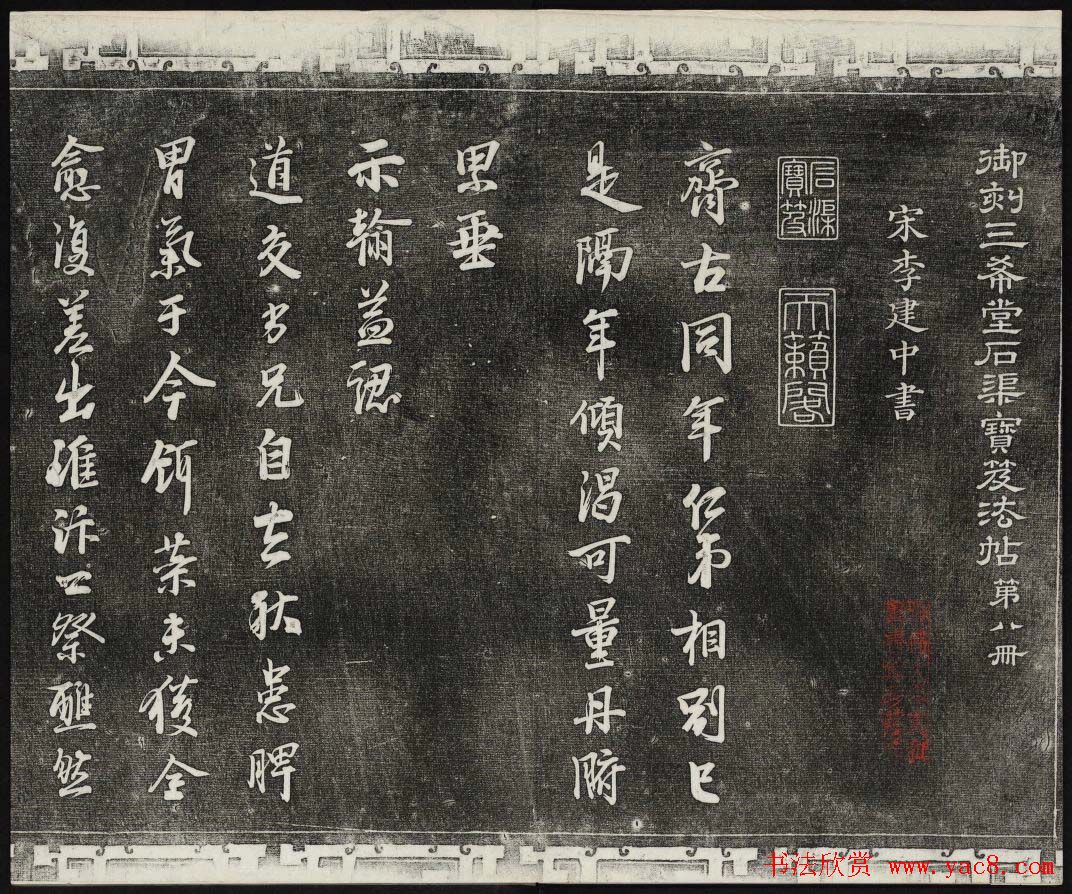 御刻三希堂石渠寶笈法帖 第八冊
宋李建中書
石渠寶笈
天籟閣
齊古同年仁弟相別已
是隔年傾渴可量丹腑
垂
示翰益認
道友劣兄自去秋患脾
胃氣于今餌藥未獲全
愈復差出汴口祭醮然
书法欣赏 www.yac8.com